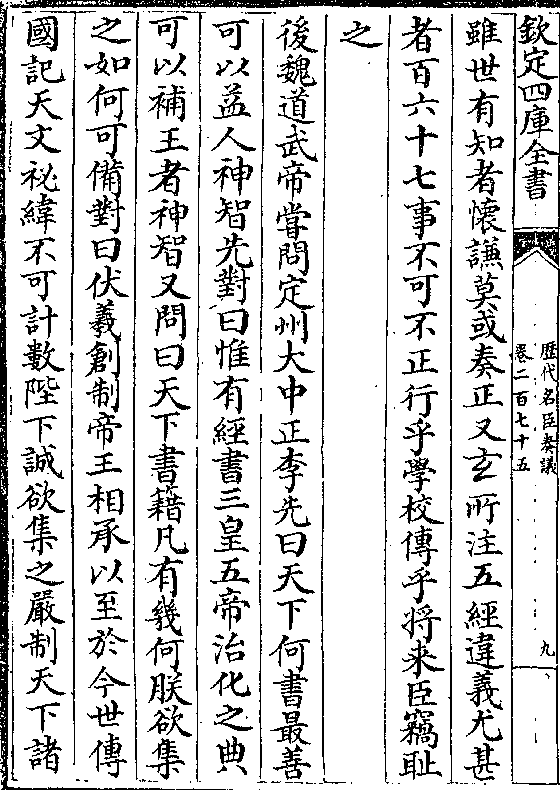 欽定四庫全書
歷代名臣奏議
卷二百七十五
九
雖世有知者懷謙莫或奏正又玄所注五經違義尤甚
者百六十七事不可不正行乎學校傳乎將来臣竊耻
之
後魏道武帝嘗問定州大中正李先曰天下何書最善
可以益人神智先對曰惟有經書三皇五帝治化之典
可以補王者神智又問曰天下書籍凡有幾何朕欲集
之如何可備對曰伏羲創制帝王相承以至於今世傳
國記天文祕緯不可計數陛下誠欲集之嚴制天下諸